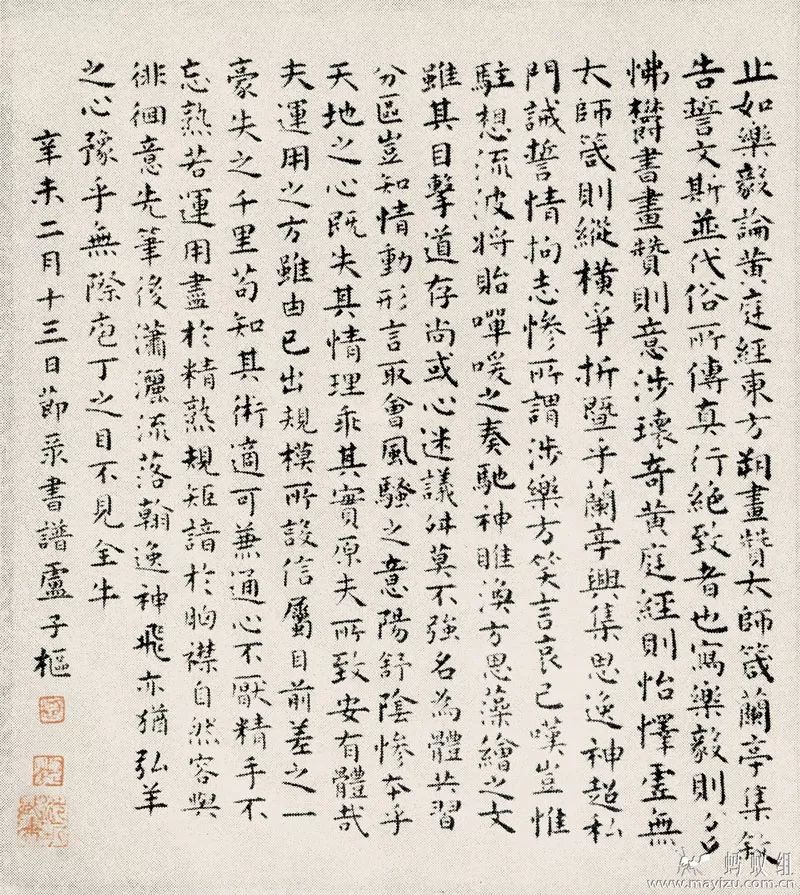 止如樂毅論黃庭經東方朔畫贊太師箴蘭亭集敘
告誓文斯並代俗所傳真行絕致者也寫樂毅則多
怫欝書畫贊則意涉瓌奇黃庭經則怡懌虛無
太師箴則縱橫爭折暨乎蘭亭興集思逸神超私
門誡誓情拘志慘所謂涉樂方笑言哀已嘆豈惟
駐想流波將貽嘽喛之奏馳神睢渙方思藻繪之文
雖其目擊道存尚或心迷議舛莫不強名為體共習
分區豈知情動形言取會風騷之意陽舒陰慘本乎
天地之心既失其情理乖其實原夫所致安有體哉
夫運用之方雖由己出規模所設信屬目前差之一
豪失之千里苟知其術適可兼通心不厭精手不
忘熟若運用盡於精熟規矩諳於胸襟自然容與
徘徊意先筆後瀟灑流落翰逸神飛亦猶弘羊
之心豫乎無際庖丁之目不見全牛
辛未二月十三日節录書譜盧子樞
蚂蚁组
www.mayizu.com.cn